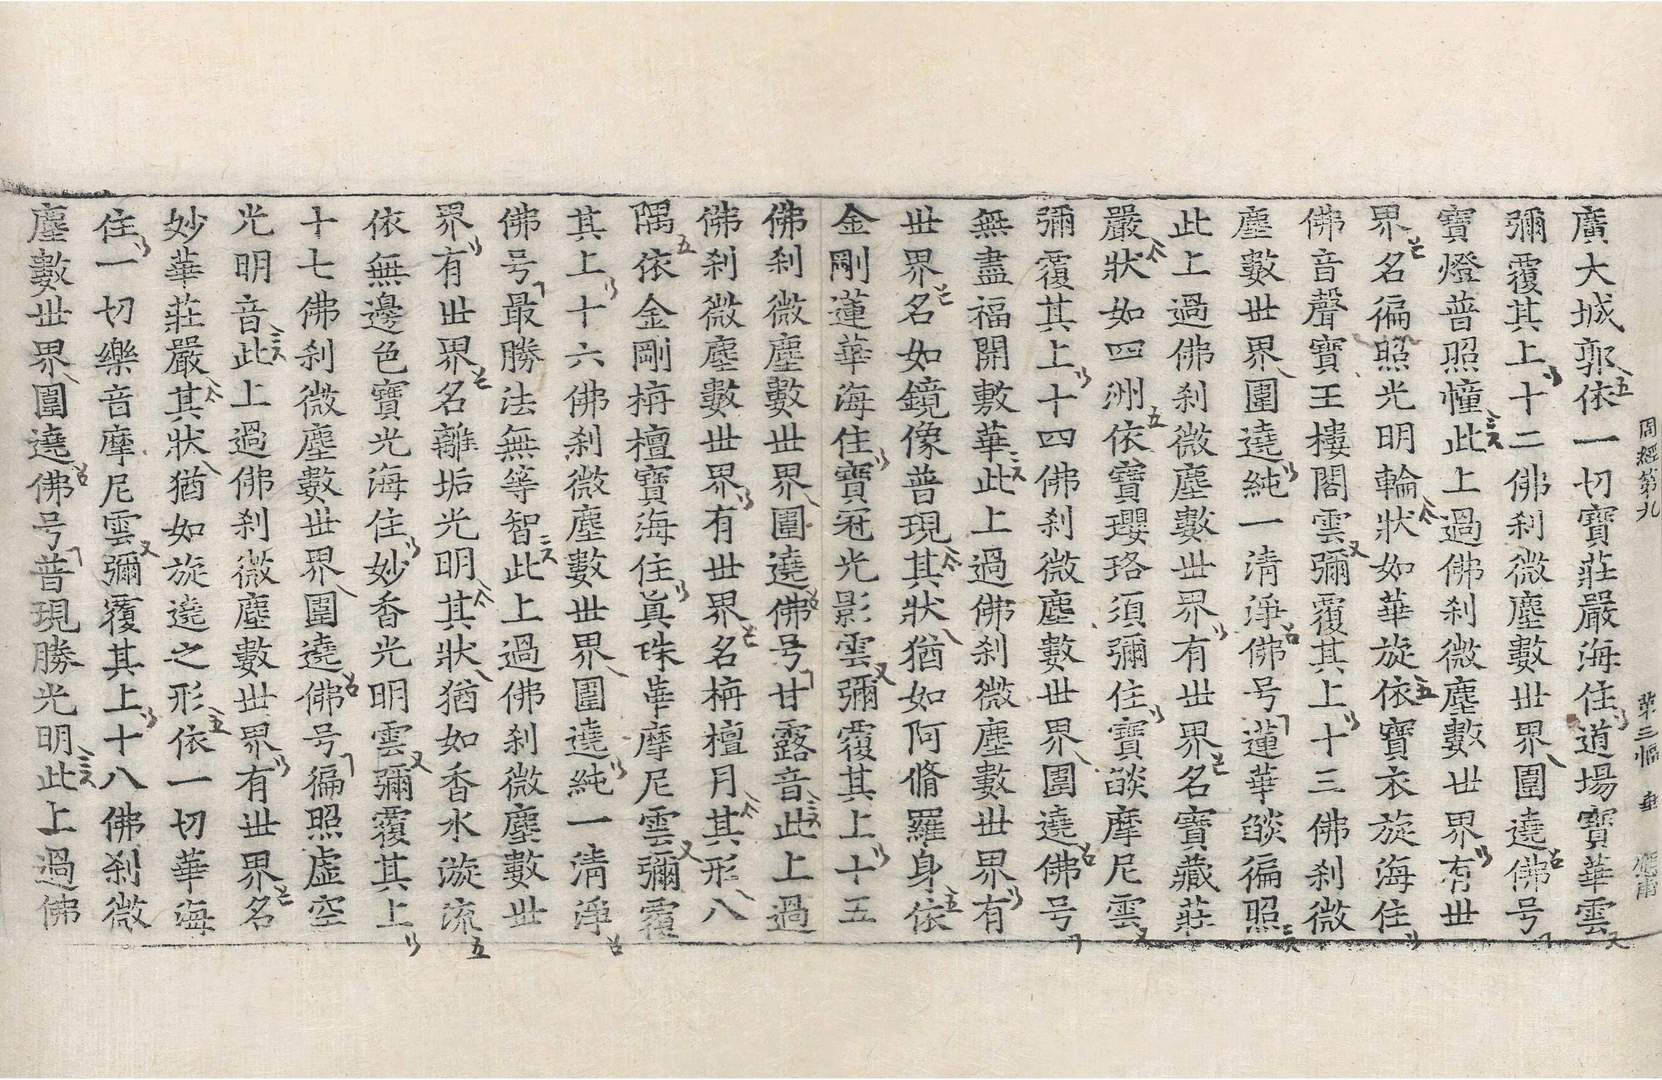 周經第九 第三幅 垂
廣大城郭依一切寶莊嚴海住道場寶華雲
彌覆其上十二佛刹微塵數世界圍遶佛号
寶燈普照幢此上過佛刹微塵數世界有世
界名徧照光明輪狀如華旋依寶衣旋海住
佛音聲寶王樓閣雲彌覆其上十三佛刹微
塵數世界圍遶純一清淨佛号蓮華燄徧照
此上過佛刹微塵數世界有世界名寶藏莊
嚴狀如四洲依寶瓔珞須彌住寶燄摩尼雲
彌覆其上十四佛刹微塵數世界圍遶佛号
無盡福開敷華此上過佛刹微塵數世界有
世界名如鏡像普現其狀猶如阿脩羅身依
金剛蓮華海住寶冠光影雲彌覆其上十五
佛刹微塵數世界圍遶佛号甘露音此上過
佛刹微塵數世界有世界名栴檀月其形八
隅依金剛栴檀寶海住眞珠華摩尼雲彌覆
其上十六佛刹微塵數世界圍遶純一清淨
佛号最勝法無等智此上過佛刹微塵數世
界有世界名離垢光明其狀猶如香水漩流
依無邊色寶光海住妙香光明雲彌覆其上
十七佛刹微塵數世界圍遶佛号徧照虛空
光明音此上過佛刹微塵數世界有世界名
妙華莊嚴其狀猶如旋遶之形依一切華海
住一切樂音摩尼雲彌覆其上十八佛刹微
塵數世界圍遶佛号普現勝光明此上過佛